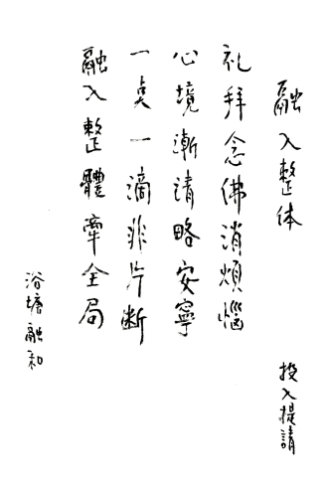 融入整体
投入提請
礼拜念佛消煩惱
心境漸請略安寧
一点一滴非片断
融入整體牽全局
浴塘融和